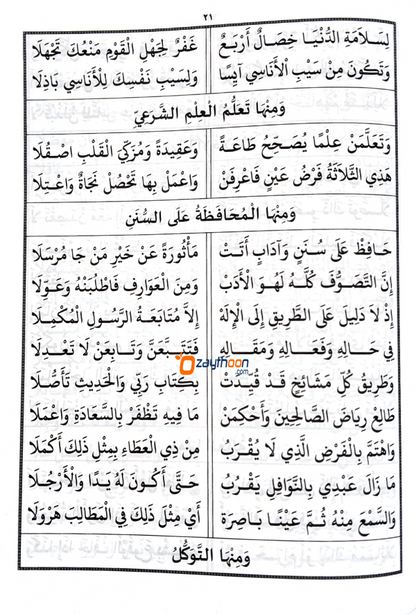 ٢١
لِسَلَامَةِ الدُّنْيَا خِصَالٌ أَرْبَعُ غَفْرٌ لِجَهْلِ الْقَوْمِ مَنْعُكَ تَجْهَلَا
وَتَكُونَ مِنْ سَيْبِ الْأَنَاسِي آيِسًا وَلِسَيْبِ نَفْسِكَ لِلْأَنَاسِي بَاذِلَا
وَمِنْهَا تَعَلُّمُ الْعِلْمِ الشَّرْعِيِّ
وَتَعَلَّمَنْ عِلْمًا يُصَحِّحُ طَاعَةً وَعَقِيدَةً وَمُزَكِّيَ الْقَلْبِ اصْقُلَا
هَذِي الثَّلَاثَةُ فَرْضُ عَيْنٍ فَاعْرِفَنْ وَاعْمَلْ بِهَا تَحْصُلْ نَجَاةٌ وَاعْتِلَا
وَمِنْهَا الْمُحَافَظَةُ عَلَى السُّنَنِ
حَافِظْ عَلَى سُنَنٍ وَآدَابٍ أَتَتْ مَأْثُورَةً عَنْ خَيْرِ مَنْ جَا مُرْسَلَا
إِنَّ التَّصَوُّفَ كُلَّهُ لَهُوَ الْأَدَبْ وَمِنَ الْعَوَارِفِ فَاطْلُبَنْهُ وَعَوِّلَا
إِذْ لَا دَلِيلَ عَلَى الطَّرِيقِ إِلَى الْإِلٰهِ إِلَّا مُتَابَعَةُ الرَّسُولِ الْمُكْمِلَا
فِي حَالِهِ وَفَعَالِهِ وَمَقَالِهِ فَتَتَبَّعَنَّ وَتَابِعَنْ لَا تَعْدِلَا
Ozaythoon.com
وَطَرِيقُ كُلِّ مَشَائِخٍ قَدْ قُيِّدَتْ بِكِتَابِ رَبِّي وَالْحَدِيثِ تَأَصُّلَا
طَالِعْ رِيَاضَ الصَّالِحِينَ وَأَحْكِمَنْ مَا فِيهِ تَظْفَرْ بِالسَّعَادَةِ وَاعْمَلَا
وَاهْتَمَّ بِالْفَرْضِ الَّذِي لَا يُقْرَبُ مِنْ ذِي الْعَطَاءِ بِمِثْلِ ذَلِكَ أَكْمَلَا
مَا زَالَ عَبْدِي بِالنَّوَافِلِ يَقْرُبُ حَتَّى أَكُونَ لَهُ يَدًا وَالْأَرْجُلَا
وَالسَّمْعَ مِنْهُ ثُمَّ عَيْنًا بَاصِرَةً أَيْ مِثْلَ ذَلِكَ فِي الْمَطَالِبِ هَرْوَلَا
وَمِنْهَا التَّوَكُّلُ